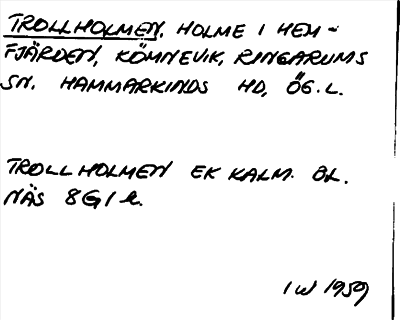 TROLLHOLMEN, HOLME I HEM-
FJÄRDEN, KÖMNEVIK, RINGARUMS
SN. HAMMARKINDS HD, ÖG.L.
TROLLHOLMEN EK KALM. BL.
NÄS 8G1h.
IW 1959